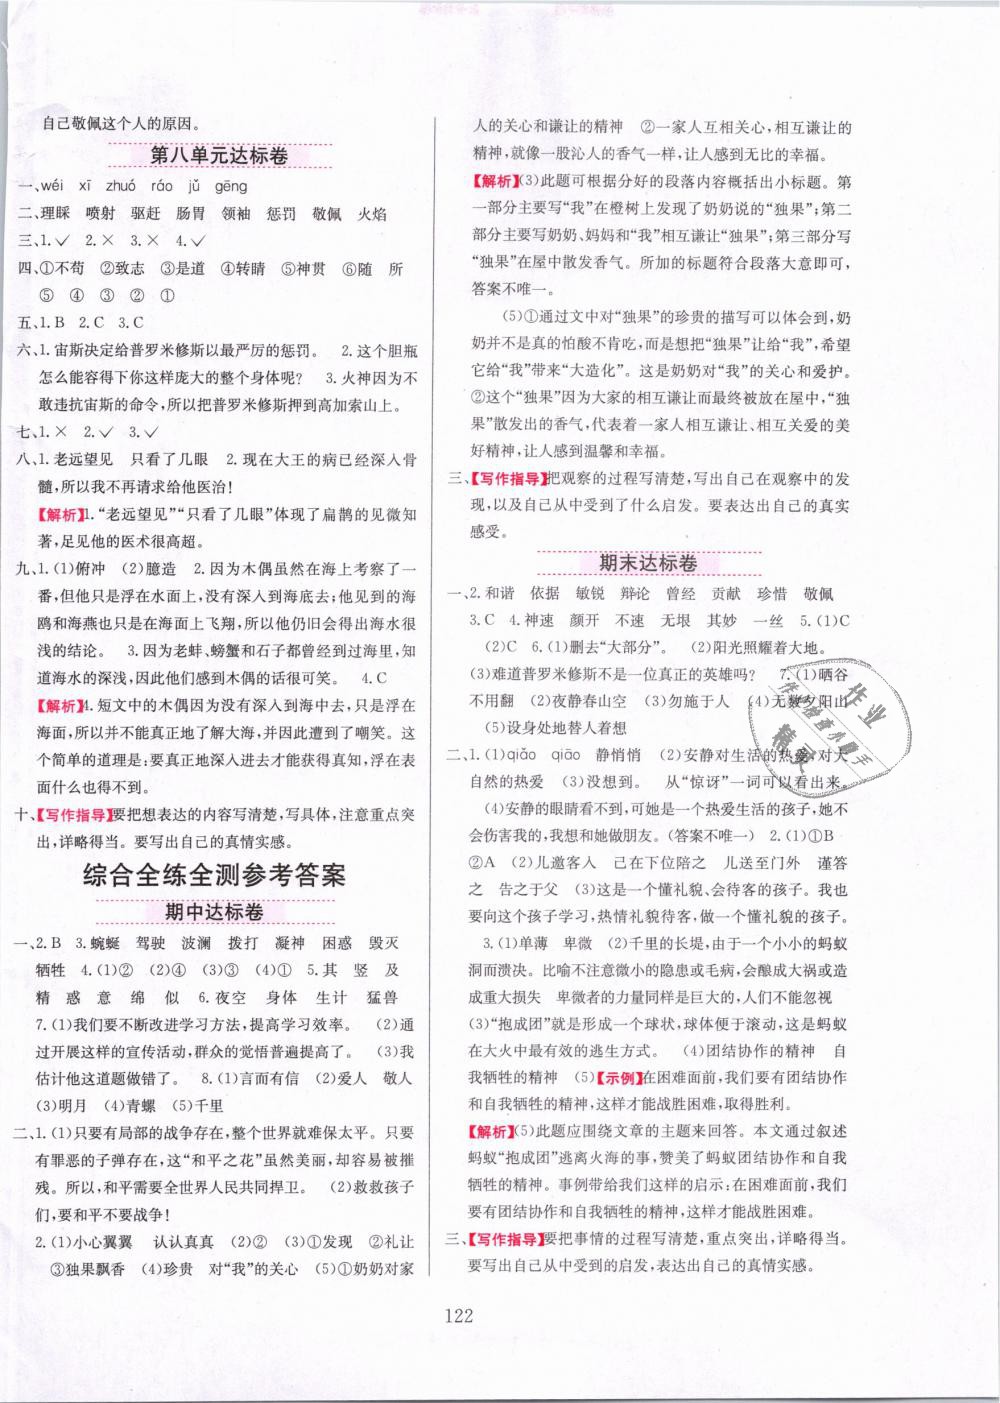 自己敬佩这个人的原因。
第八单元达标卷
一、wéi xī zhuó ráo jǔ gēng
二、理睬 喷射 驱赶 肠胃 领袖 惩罚 敬佩 火焰
三、1.✓ 2.× 3.× 4.✓
四、①不苟 ②致志 ③是道 ④转睛 ⑤神贯 ⑥随 所
⑤ ④ ③ ② ①
五、1.B 2.C 3.C
六、1.宙斯决定给普罗米修斯以最严厉的惩罚。 2.这个胆瓶
怎么能容得下你这样庞大的整个身体呢? 3.火神因为不
敢违抗宙斯的命令,所以把普罗米修斯押到高加索山上。
七、1.× 2.✓ 3.✓
八、1.老远望见 只看了几眼 2.现在大王的病已经深入骨
髓,所以我不再请求给他医治!
【解析】1.“老远望见”“只看了几眼”体现了扁鹊的见微知
著,足见他的医术很高超。
九、1.(1)俯冲 (2)臆造 2.因为木偶虽然在海上考察了一
番,但他一直浮在水面上,没有深入到海底去;他见到的海
鸥和海燕也只是在海面上飞翔,所以他仍旧会得出海水很
浅的结论。 3.因为老蚌、螃蟹和石子都曾经到过海里,知
道海水的深浅,因此他们感到木偶的话很可笑。 4.C
【解析】4.短文中的木偶因为没有深入到海中去,只是浮在
海面,所以并不能真正地了解大海,并因此遭到了嘲笑。这
个简单的道理是:要真正地深入进去才能获得真知,浮在表
面什么也得不到。
十、【写作指导】要把想表达的内容写清楚,写具体,注意重点突
出,详略得当。要写出自己的真情实感。
综合全练全测参考答案
期中达标卷
一、2.B 3.蜿蜒 驾驶 波澜 拨打 凝神 困惑 毁灭
牺牲 4.(1)② (2)④ (3)③ (4)① 5.其 竖 及
精 惑 意 绵 似 6.夜空 身体 生计 猛兽
7.(1)我们要不断改进学习方法,提高学习效率。 (2)通
过开展这样的宣传活动,群众的觉悟普遍提高了。 (3)我
估计他这道题做错了。 8.(1)言而有信 (2)爱人 敬人
(3)明月 (4)青螺 (5)千里
二、1.(1)只要有局部的战争存在,整个世界就难保太平。只要
有罪恶的子弹存在,这“和平之花”虽然美丽,却可能会被摧
残。所以,和平需要全世界人民共同捍卫。 (2)救救孩子
们,要和平不要战争!
2.(1)小心翼翼 认认真真 (2)② (3)①发现 ②礼让
③独果飘香 (4)珍贵 对“我”的关心 (5)①奶奶对家
人的关心和谦让的精神 ②一家人互相关心、相互谦让的
精神,就像一股沁人的香气一样,让人感到无比的幸福。
【解析】(3)此题可根据分好的段落内容概括出小标题。第
一部分主要写“我”在橙树上发现了奶奶说的“独果”;第二
部分主要写奶奶、妈妈和“我”相互谦让“独果”;第三部分写
“独果”在屋中散发香气。所加的标题符合段落大意即可,
答案不唯一。
(5)①通过文中对“独果”的珍贵的描写可以体会到,奶
奶并不是真的怕酸不肯吃,而是要把“独果”让给“我”,希望
它给“我”带来“大造化”。这是奶奶对“我”的关心和爱护。
②这个“独果”因为大家的相互谦让而最终被放在屋中,“独
果”散发出的香气,代表着一家人相互谦让、相互关爱的美
好精神,让人感到温馨和幸福。
三、【写作指导】把观察的过程写清楚,写出自己在观察中的发
现,以及自己从中受到了什么启发。要表达出自己的真实
感受。
期末达标卷
一、2.和谐 依据 敏锐 辩论 曾经 贡献 珍惜 敬佩
3.C 4.神速 颜开 不速 无垠 其妙 一丝 5.(1)C
(2)C 6.(1)删去“大部分”。 (2)阳光照耀着大地。
(3)难道普罗米修斯不是一位真正的英雄吗? 7.(1)晒谷
不用翻 (2)夜静春山空 (3)勿施于人 (4)无数夕阳山
(5)设身处地替人着想
二、1.(1)qiǎo qiāo 静悄悄 (2)安静对生活的热爱,对大
自然的热爱 (3)飞走。 从“惊讶”一词可以看出来。
(4)安静的眼睛看不到,可她是一个热爱生活的孩子,她不
会伤害我的,我想和她做朋友。(答案不唯一) 2.(1)①B
②A (2)儿邀客人 己在下位陪之 儿送至大门外 谨答
之 告之于父 (3)这是一个懂礼貌、会待客的孩子。我也
要向这个孩子学习,热情礼貌待客,做一个懂礼貌的好孩子。
3.(1)单薄 卑微 (2)千里的长堤,由于一个小小的蚂蚁
洞而溃决。比喻不注意微小的隐患或毛病,会酿成大祸或造
成重大损失 卑微者的力量同样是巨大的,人们不能忽视
(3)“抱成团”就是形成一个球状,球体便于滚动,这是蚂蚁
在大火中最有效的逃生方式。 (4)团结协作的精神 自
我牺牲的精神 (5)【示例】在困难面前,我们要有团结协作
和自我牺牲的精神,这样才能战胜困难,取得胜利。
【解析】(5)此题应围绕文章的主题来回答。本文通过叙述
蚂蚁“抱成团”逃离火海的事,赞美了蚂蚁团结协作和自我
牺牲的精神。事例带给我们的启示:在困难面前,我们要有
团结协作和自我牺牲的精神,这样才能战胜困难。
三、【写作指导】要把事情的过程写清楚,重点突出,详略得当。
要写出自己从中受到的启发,表达出自己的真情实感。
122
作业
作业检查小助手
精灵